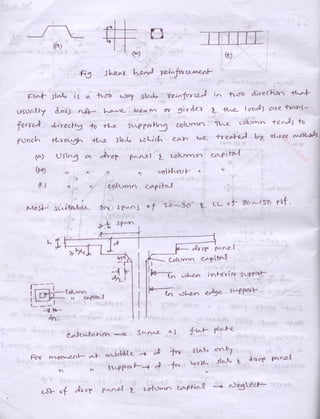 (a)
(b)
(c)
Fig. Shear head reinforcement
Flat slab is a two way slab reinforced in two direction that
usually does not have beam or girders & the loads are trans-
ferred directly to the supporting column. The column tends to
punch through the slab which can be treated by three methods
(a) Using a drop panel & column capital
(b) " " " " without " "
(c) " " column capital
Most suitable for spans of 20~30' & LL of 90~150 psf.
span
h
d
drop panel
Column Capital
45°
d/2
ln when interior support
ln when edge support
Column
" capital
d/2
Calculation → Same as flat plate
For moment at middle → d for slab only
" " support → d for both slab & drop panel
Wt of drop panel & column capital → Neglect